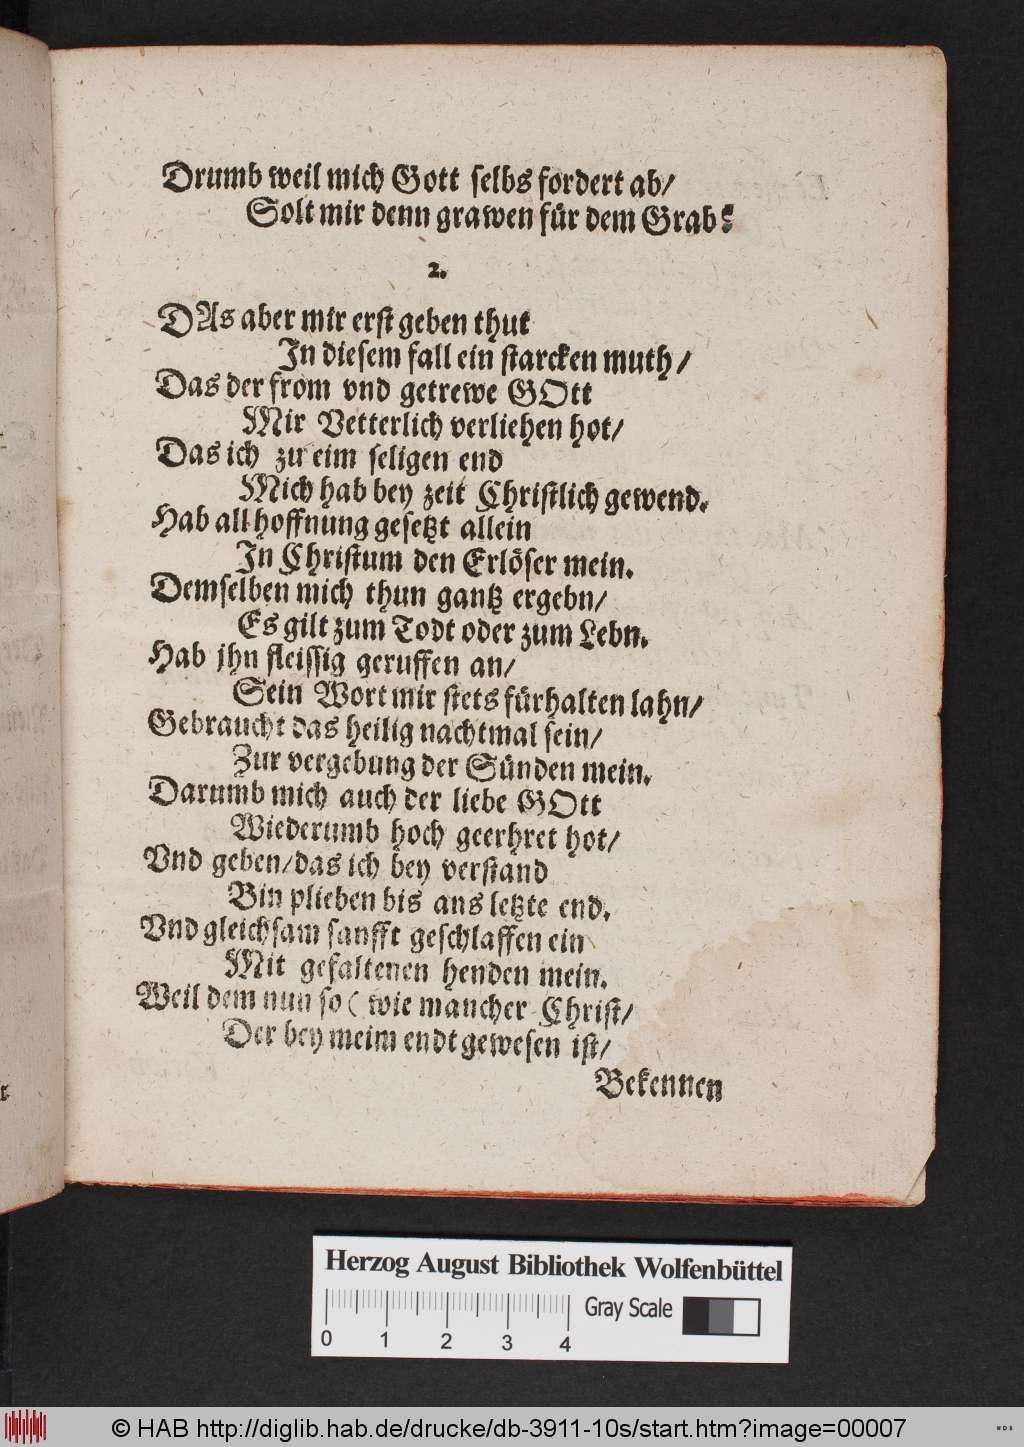 Drumb weil mich Gott selbs fordert ab/
Solt mir denn grawen für dem Grab?
2.
DAs aber mir erst geben thut
In diesem fall ein starcken muth/
Das der from vnd getrewe GOtt
Mir Vetterlich verliehen hot/
Das ich zu eim seligen end
Mich hab bey zeit Christlich gewend.
Hab all hoffnung gesetzt allein
In Christum den Erlöser mein.
Demselben mich thun gantz ergebn/
Es gilt zum Todt oder zum Lebn.
Hab jhn fleissig geruffen an/
Sein Wort mir stets fürhalten lahn/
Gebraucht das heilig nachtmal sein/
Zur vergebung der Sünden mein.
Darumb mich auch der liebe GOtt
Wiederumb hoch geerhret hot/
Vnd geben/das ich bey verstand
Bin plieben bis ans letzte end.
Vnd gleichsam sanfft geschlaffen ein
Mit gefaltenen henden mein.
Weil dem nun so ( wie mancher Christ/
Der bey meim endt gewesen ist/
Bekennen
Herzog August Bibliothek Wolfenbüttel
0 1 2 3 4 Gray Scale
© HAB http://diglib.hab.de/drucke/db-3911-10s/start.htm?image=00007